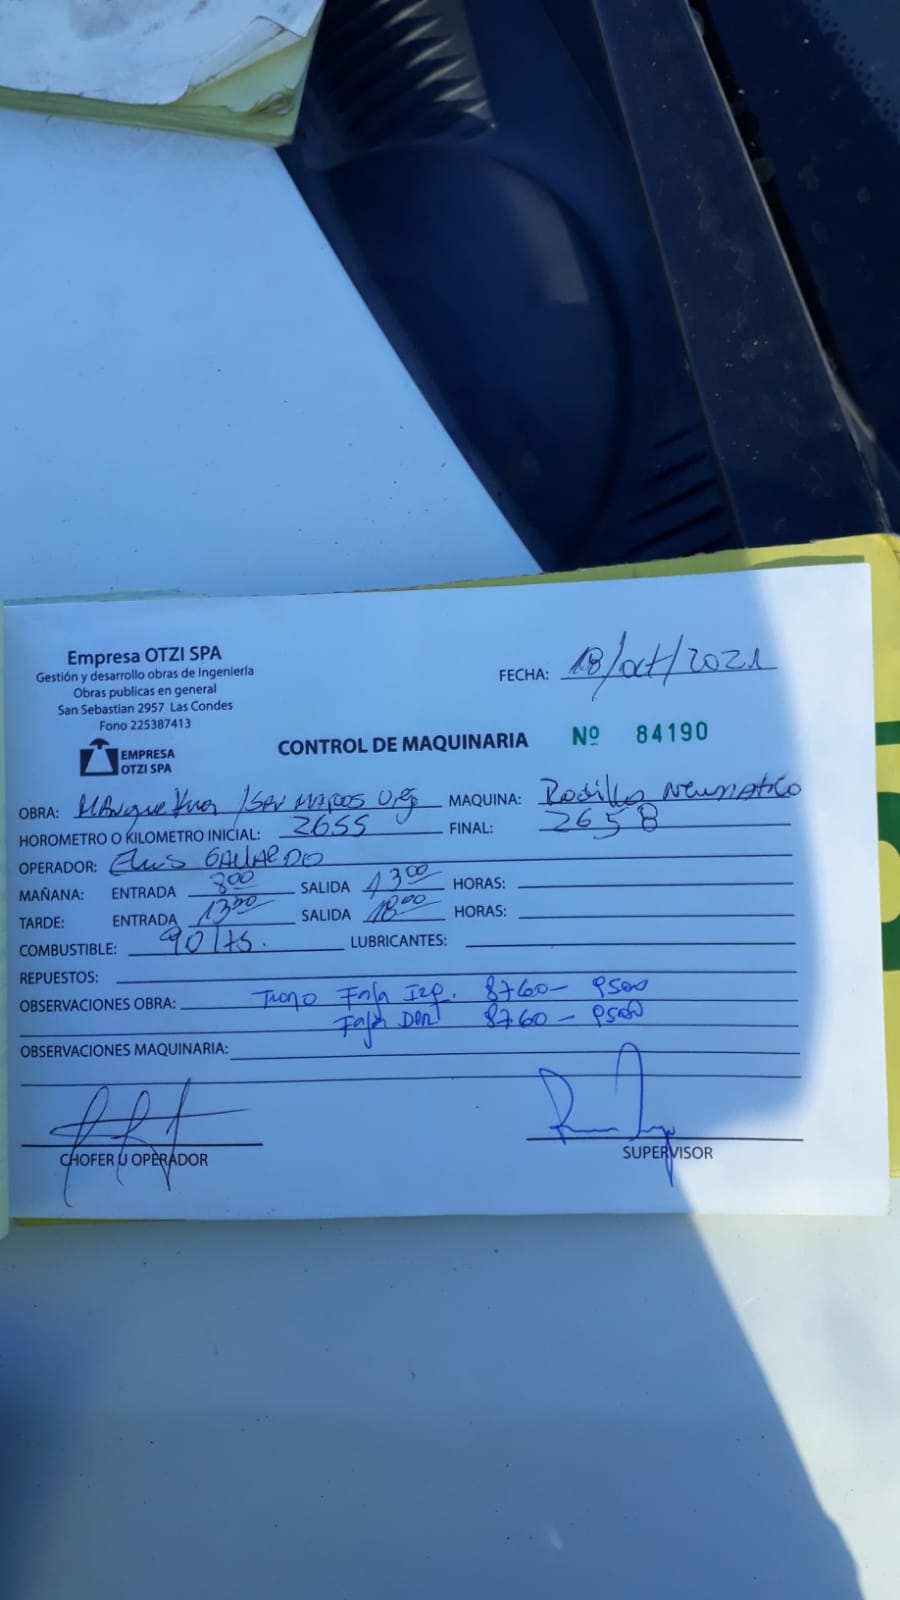 Empresa OTZI SPA
Gestión y desarrollo obras de Ingeniería
Obras publicas en general
San Sebastian 2957 Las Condes
Fono 225387413
EMPRESA
OTZI SPA
FECHA: 18/oct/2021
CONTROL DE MAQUINARIA Nº 84190
OBRA: /SAN MARCOS MAQUINA: Rodillo Neumatico
HOROMETRO O KILOMETRO INICIAL: 2655 FINAL: 2658
OPERADOR: GALLARDO
MAÑANA: ENTRADA 800 SALIDA 1300 HORAS:
TARDE: ENTRADA SALIDA 1800 HORAS:
COMBUSTIBLE: 90 LTS. LUBRICANTES:
REPUESTOS:
OBSERVACIONES OBRA: Tramo Faja Izq. 8760 - 9500
Faja Der 8760 - 9500
OBSERVACIONES MAQUINARIA:
CHOFER U OPERADOR
SUPERVISOR